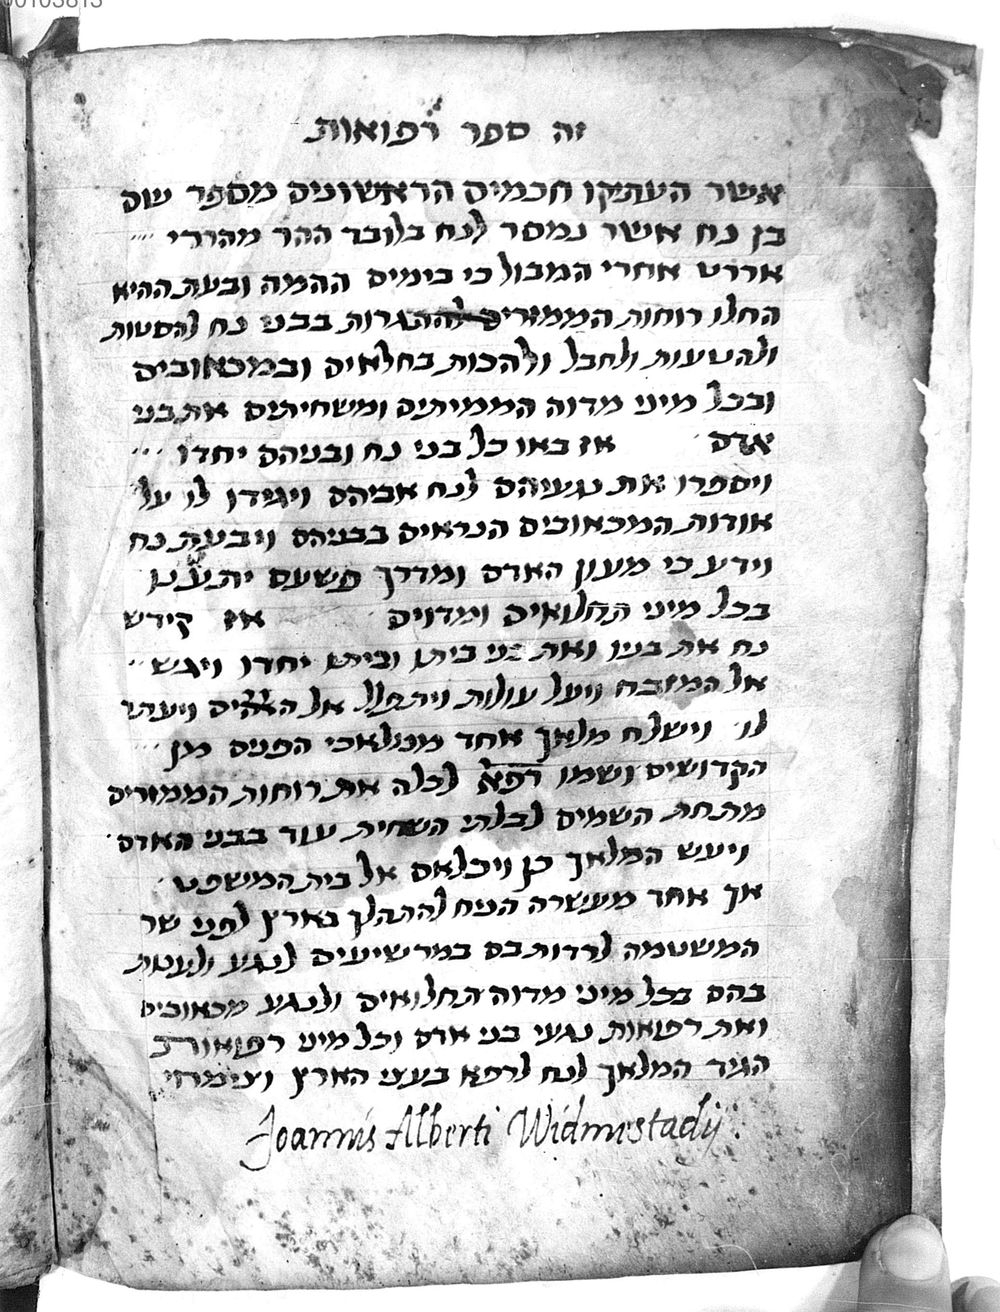 00103813
זה ספר רפואות
אשר העתיקו חכמים הראשונים מספר שם
בן נח אשר נמסר לנח בלובר ההר מהררי
אררט אחרי המבול כי בימים ההמה ובעת ההיא
החלו רוחות הממזרים להתגרות בבני נח להסטות
ולהטעות ולחבל ולהכות בחלאים ובמכאובים
ובכל מיני מדוה הממיתים ומשחיתים את בני
אדם אז באו כל בני נח ובניהם יחדו
ויספרו את נגעיהם לנח אביהם ויגידו לו על
אודות המכאובים הנראים בבניהם ויבעת נח
וידע כי מעון האדם ומדרך פשעם יתענו
בכל מיני תחלואים ומדוים אז קידש
נח את בניו ואת בני ביתו וביתו יחדו ויגש
אל המזבח ויעל עולות ויתפלל אל האלהים ויעתר
לו וישלח מלאך אחד ממלאכי הפנים מן
הקדושים ושמו רפאל לכלה את רוחות הממזרים
מתחת השמים לבלתי השחית עוד בבני האדם
ויעש המלאך כן ויכלאם אל בית המשפט
אך אחד מעשרה הניח להתהלך בארץ לפני שר
המשטמה לרדות בם במרשיעים לנגע ולענות
בהם בכל מיני מדוה תחלואים ולנגע מכאובים
ואת רפואות נגעי בני אדם וכל מיני רפואות
הגיד המלאך לנח לרפא בעצי הארץ וצימחי
Joannis Alberti Widmestadij.